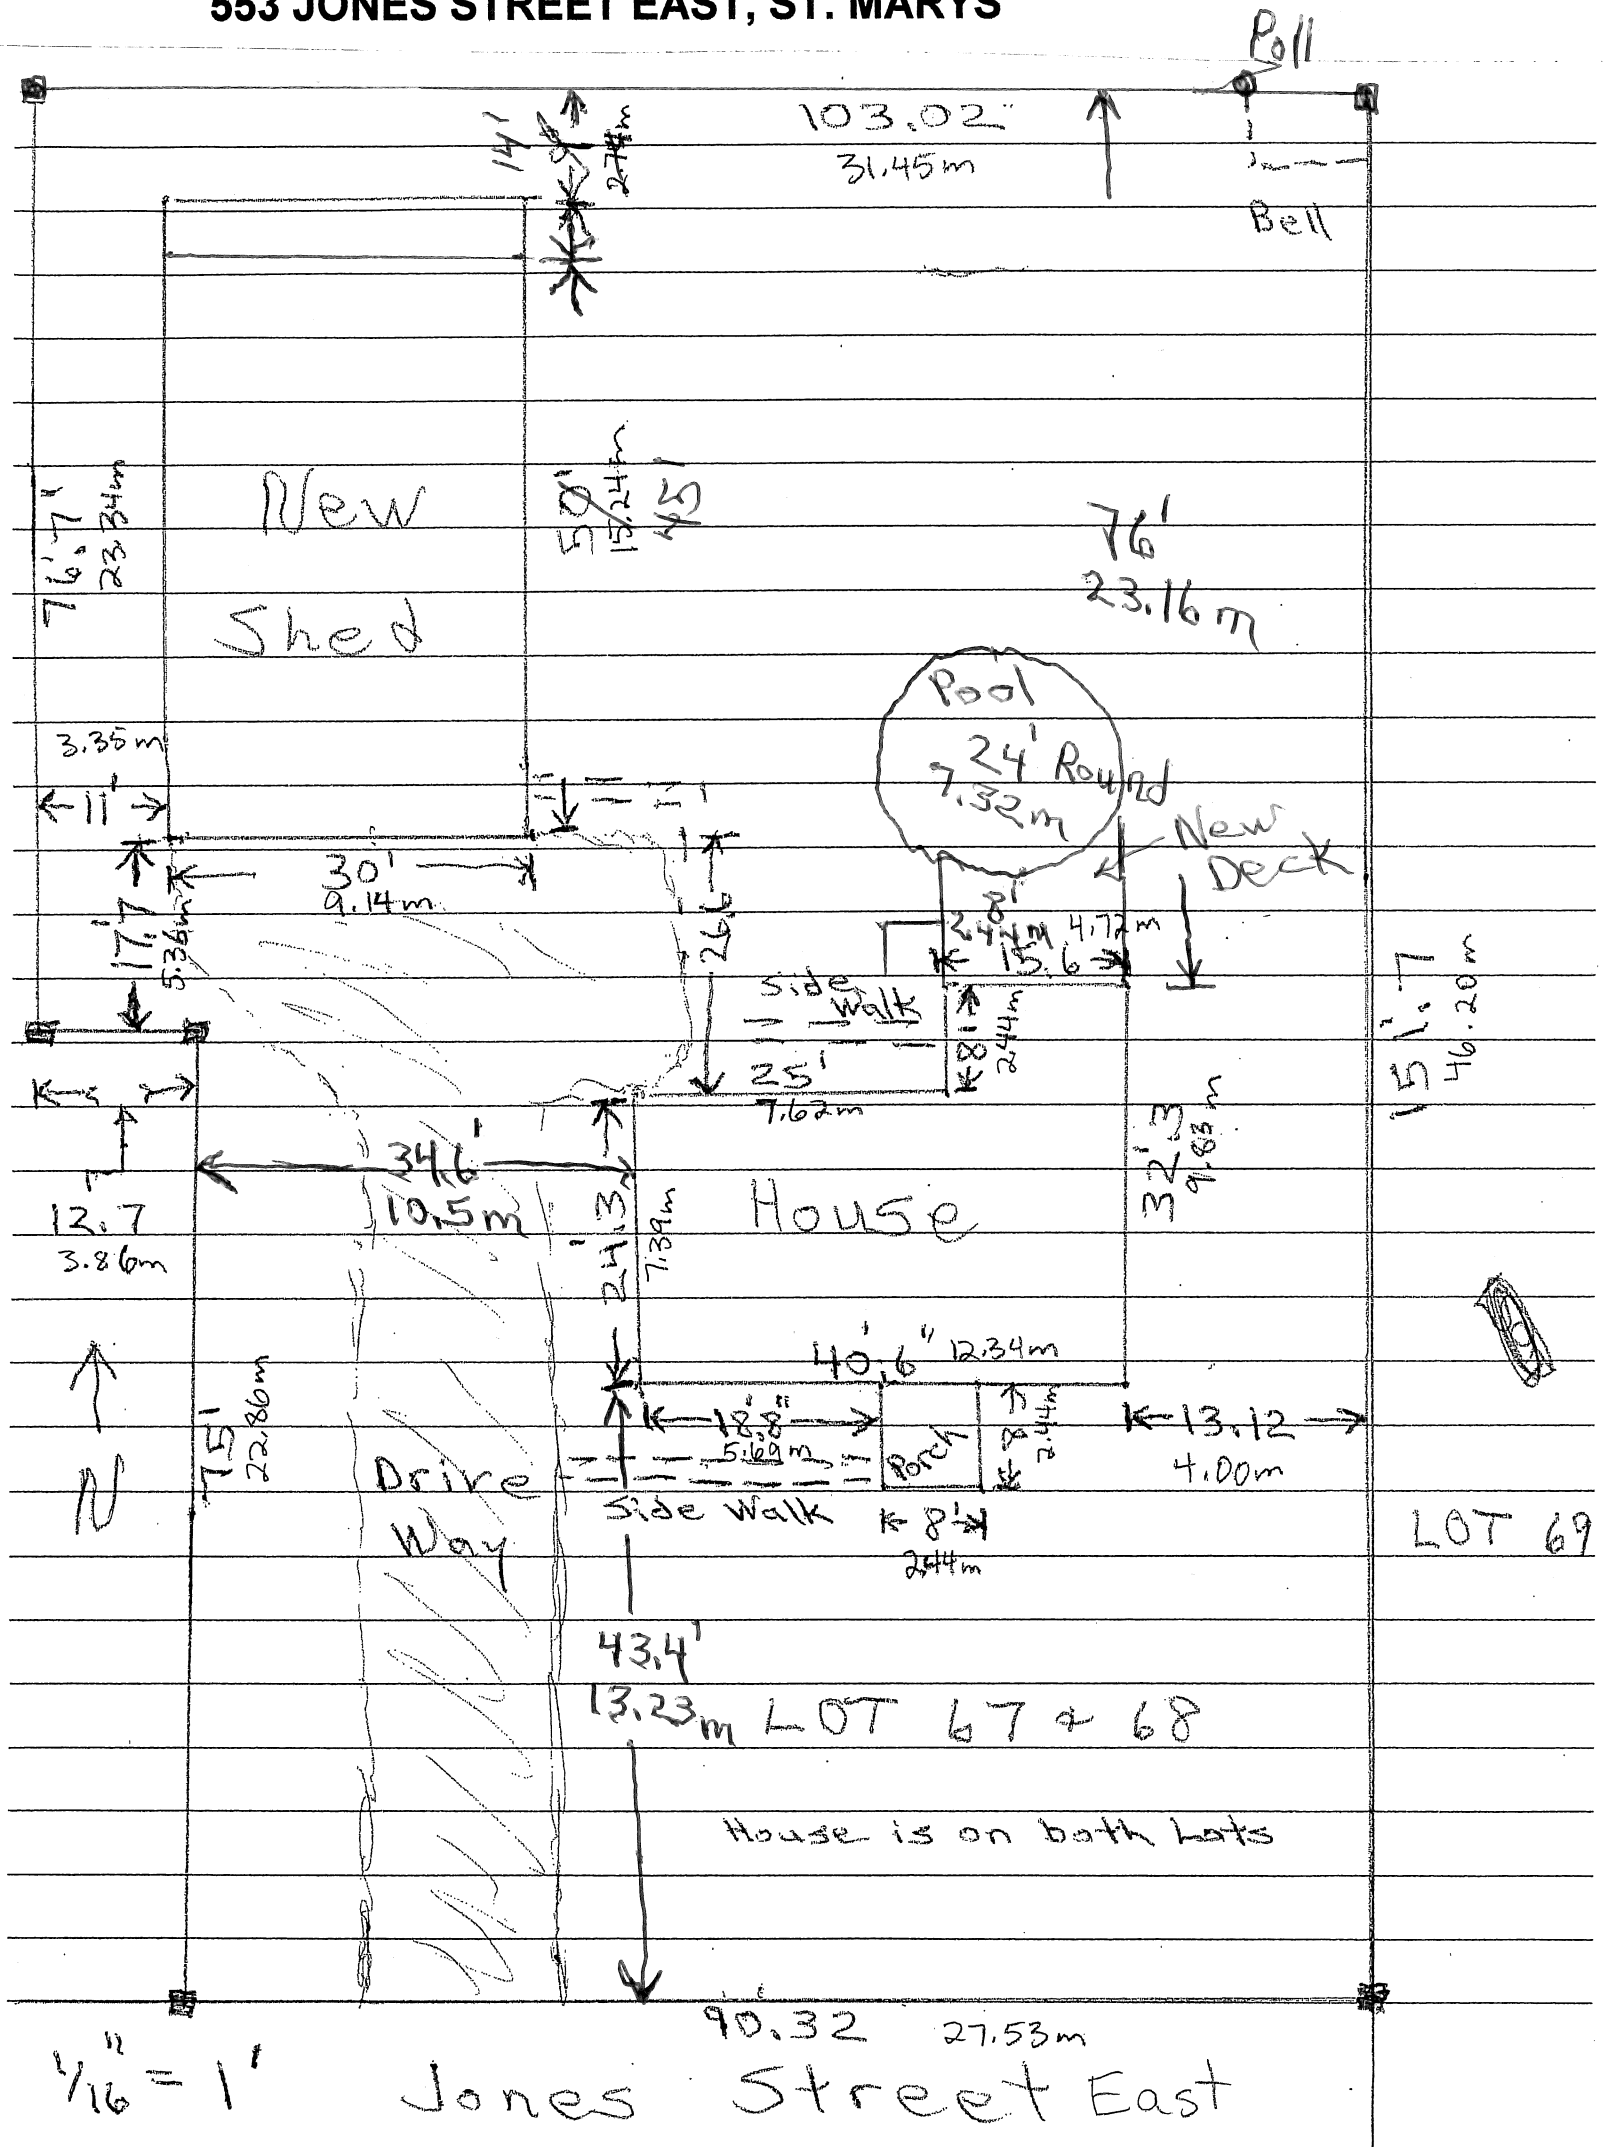 553 JONES STREET EAST, ST. MARYS
Poll
103.02"
31.45m
14'
9'
2.74m
Bell
New
Shed
50'
15.24m
45'
76'.7"
23.34m
76'
23.16m
Pool
24' Round
7.32m
New
Deck
3.35m
11'
30'
9.14m
17'.7
5.36m
26.6
8'
2.44m
4.72m
15.6
Side
Walk
8'
2.44m
25'
7.62m
151'.7
46.20m
34.6'
10.5m
12.7
3.86m
24'.3
7.39m
House
32'.3
9.83m
40'.6"
12.34m
N
75'
22.86m
18'.8"
5.69m
Porch
8'
2.44m
13.12
4.00m
Drive
Way
Side Walk
8'
2.44m
LOT 69
43.4'
13.23m
LOT 67 & 68
House is on both Lots
90.32'
27.53m
1/16" = 1'
Jones Street East